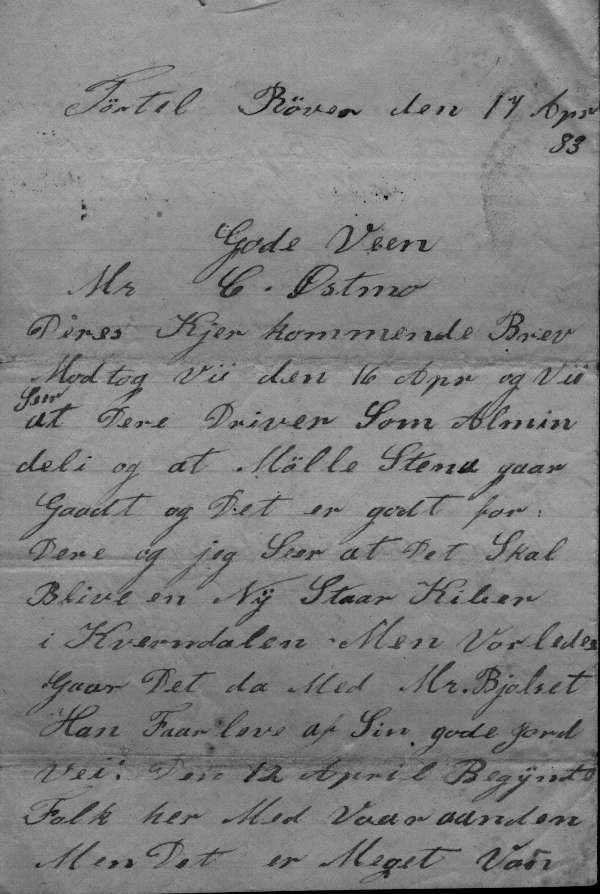 Törtel Röver den 17 Apr
83
Gode Veen
Mr C. Østmo
Deres Kjer kommende Brev
Modtog Vii den 16 Apr og Vii
Seer
at Dere Driver Som Almin
deli og at Mölle Stenu gaar
Gaadt og Det er godt for
Dere og jeg Seer at Det Skal
Blive en Nÿ Staar Kiber
i Kverndalen Men Vorledes
Gaar Det da Med Mr. Bjolset
Han Faar leve af Sin gode Jord
Vei. Den 12 April Begÿnte
Folk her Med Vaaraanden
Men Det er Meget